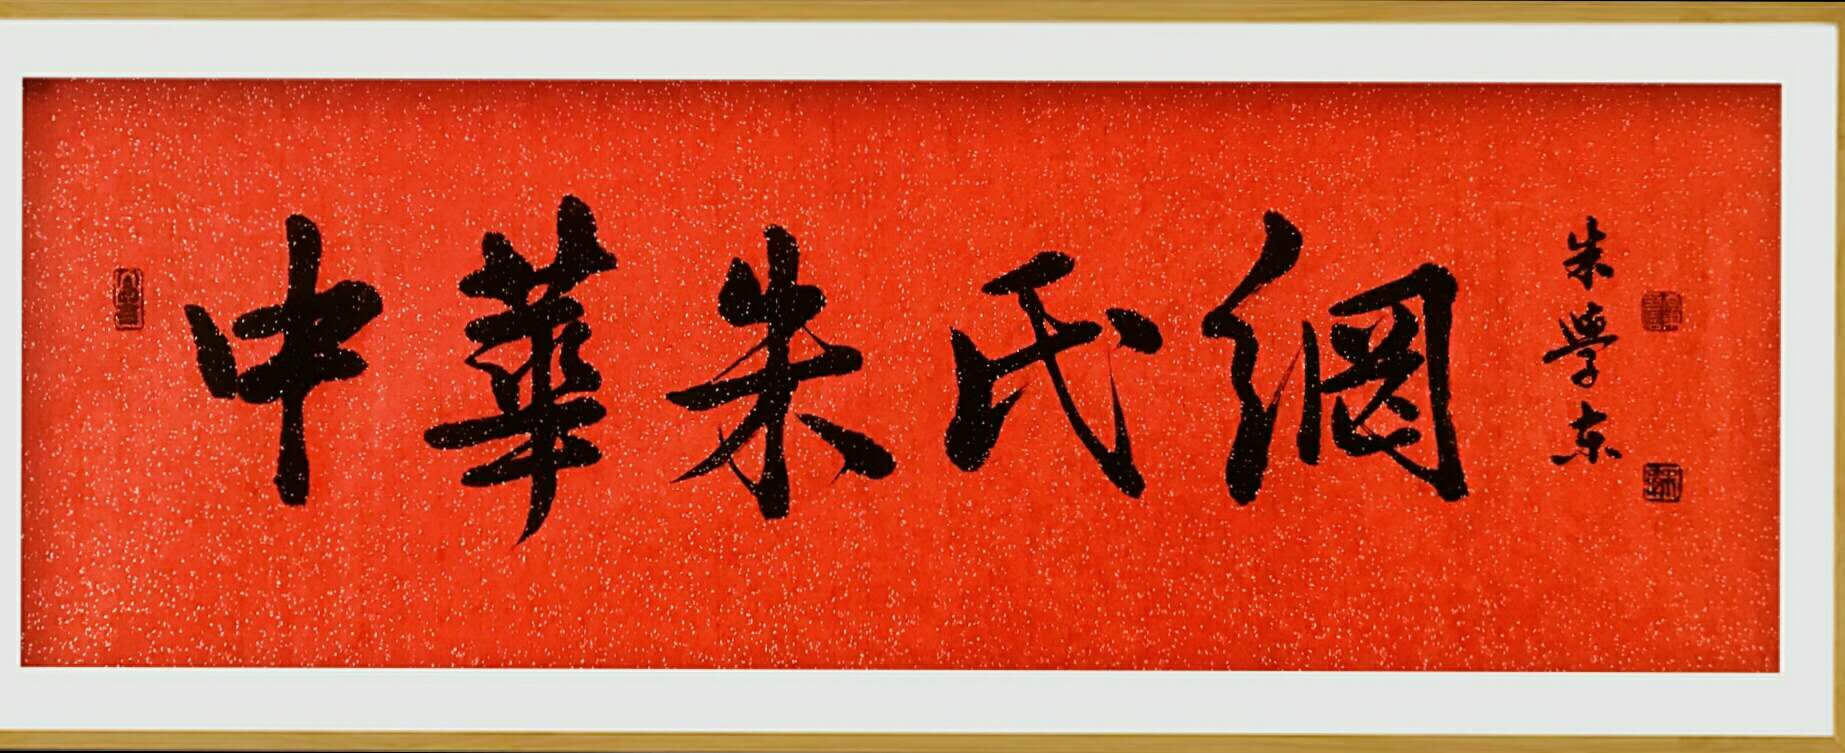 中華朱氏網
朱學东